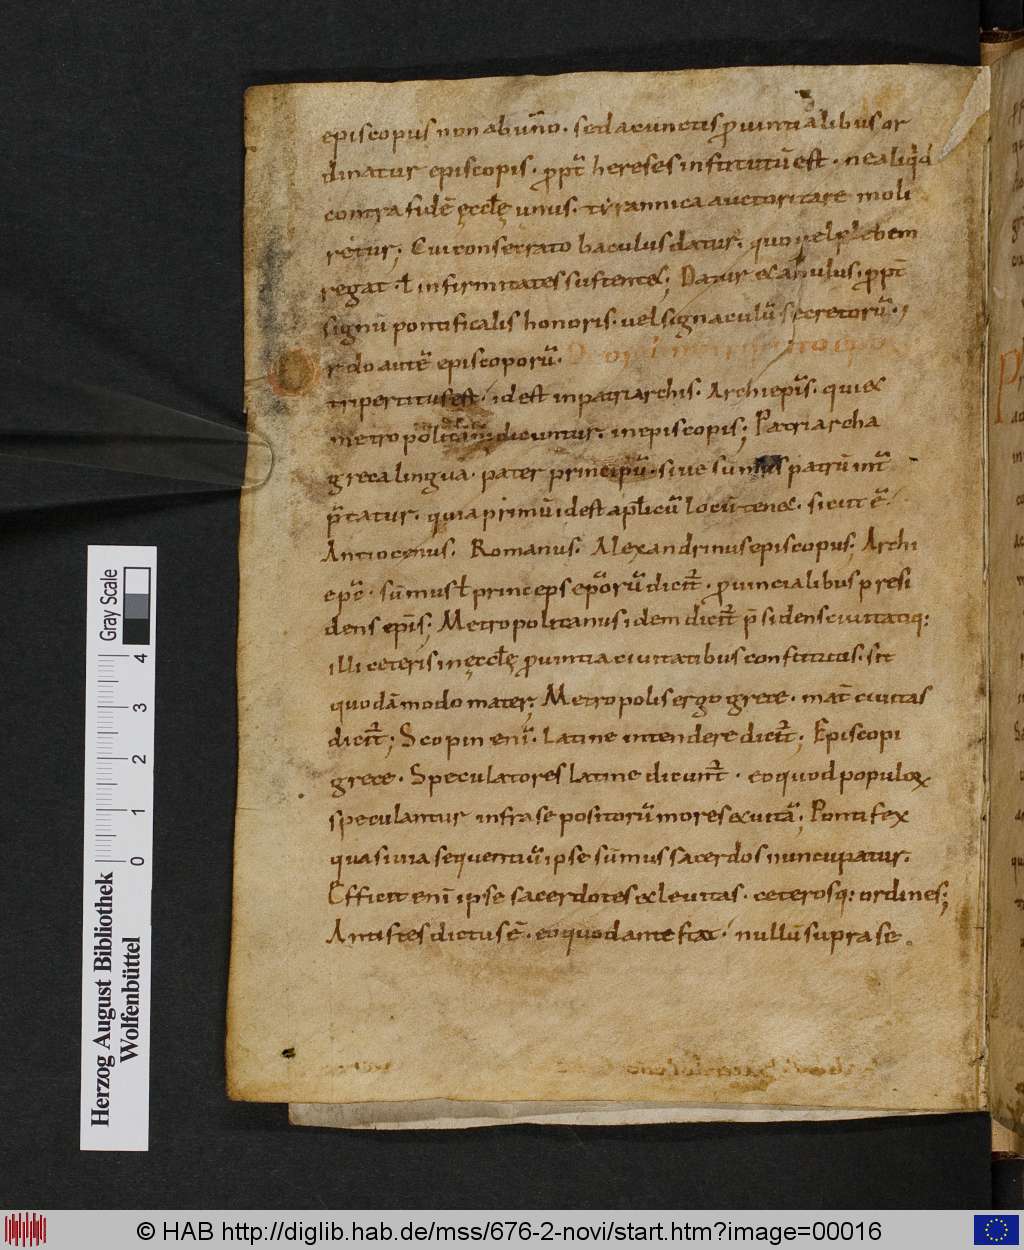 episcopus non ab uno. sed acunctis ꝓvintialibus or
dinatur episcopis. ꝓpt̄ hereses institutū est. ne aliq̇d
contra fidē ęcclę unus. tyrannica auctoritate moli
retur; Cui consecrato baculus datur. quo vel plebem
regat. ł infirmitates sustentet; Datur & anulus. ꝓpt̄
signū pontificalis honoris. vel signaculū secretorū.
rdo autē episcoporū.
tripertitus est. id est in patriarchis. Archiepīs. qui &
metropolitani dicuntur. in episcopis; Patriarcha
greca lingua. pater principū. sive summus patrū int̄
p̄tatur. quia primū id est aplicū locū tenet. sicut ē
Antiocenus. Romanus. Alexandrinus episcopus. Archi
epc̄. sūmus ł princeps epōrū dicit̄. ꝓvincialibus presi
dens epīs; Metropolitanus idem dicit̄ p̄sidens civitatiq:
illi ceteris in ęcclę ꝓvintia civitatibus constitutis. sit
quodāmodo mater; Metropolis ergo grece. mat̄ civitas
dicit̄; Scopin enī. Latine intendere dicit̄; Episcopi
grece. Speculatores latine dicunt̄. eo quod populoꝝ
speculantur infra se positorū mores & vitā; Pontifex
quasi via sequentiū ipse sūmus sacerdos nuncupatur.
Efficit enī ipse sacerdotes & levitas. ceterosq: ordines;
Antistes dictus ē. eo quod ante stat. nullū supra se
Herzog August Bibliothek
Wolfenbüttel
Gray Scale
0 1 2 3 4
© HAB http://diglib.hab.de/mss/676-2-novi/start.htm?image=00016